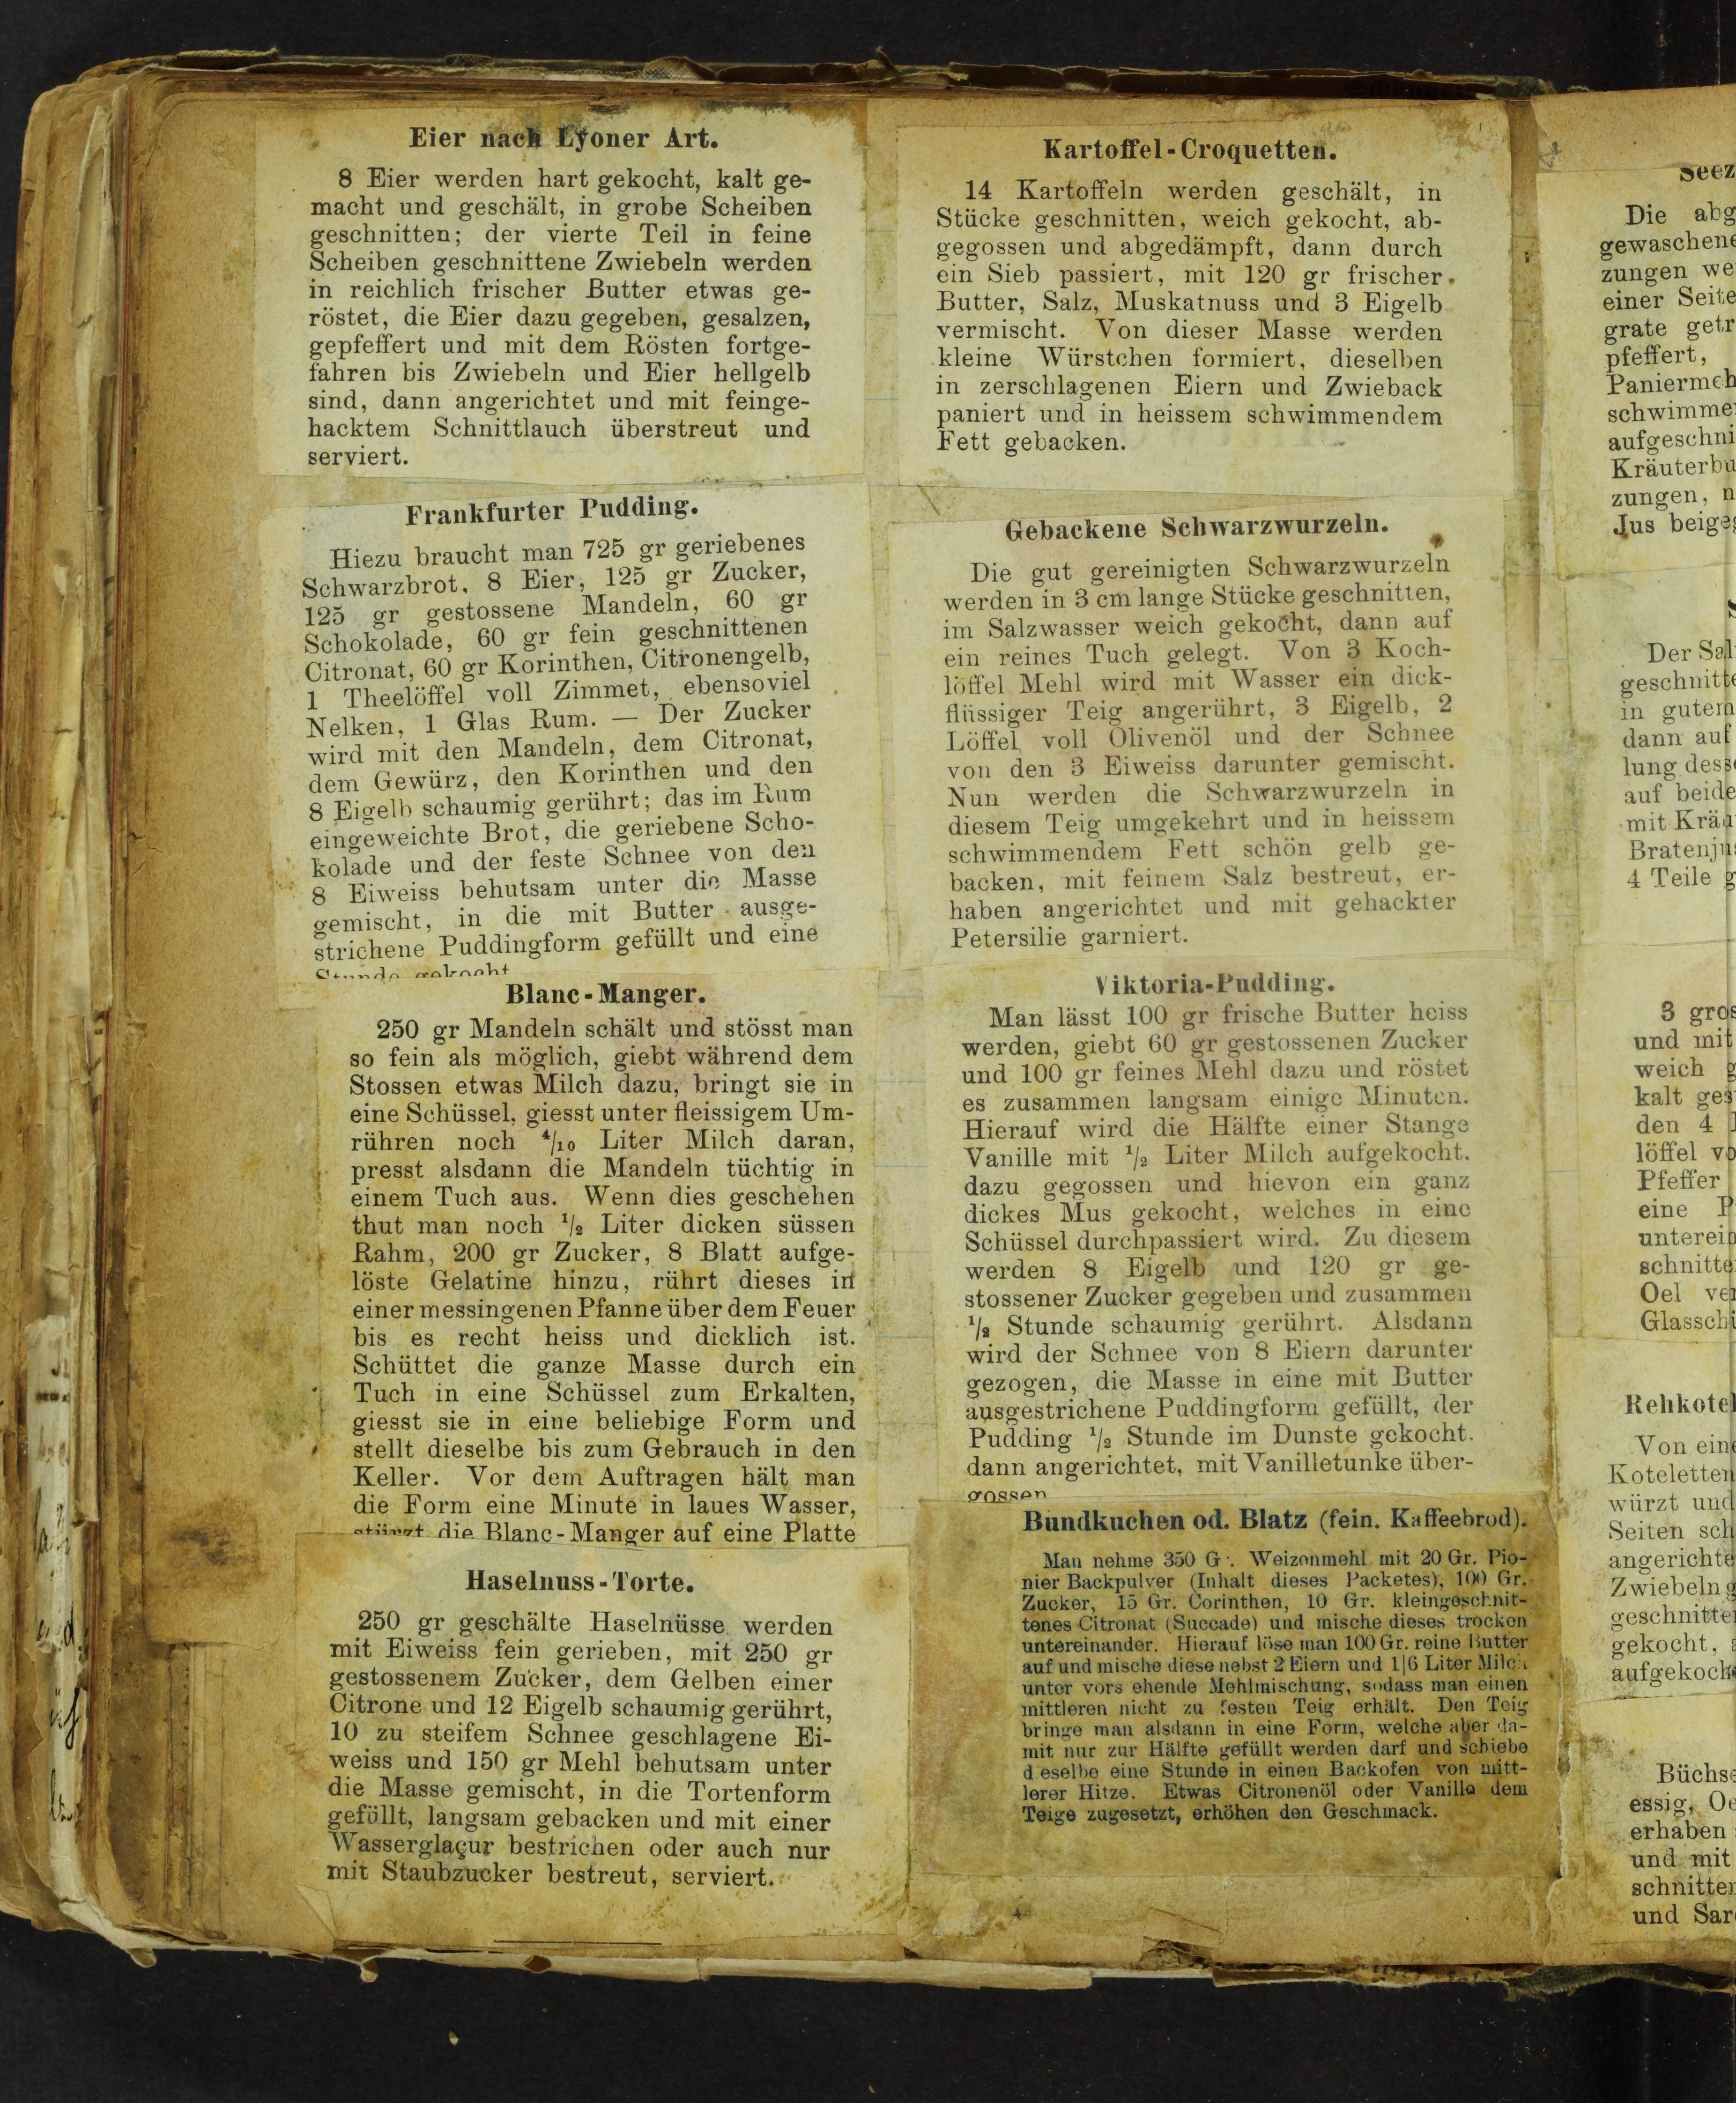 Eier nach Lyoner Art.
8 Eier werden hart gekocht, kalt ge-
macht und geschält, in grobe Scheiben
geschnitten; der vierte Teil in feine
Scheiben geschnittene Zwiebeln werden
in reichlich frischer Butter etwas ge-
röstet, die Eier dazu gegeben, gesalzen,
gepfeffert und mit dem Rösten fortge-
fahren bis Zwiebeln und Eier hellgelb
sind, dann angerichtet und mit feinge-
hacktem Schnittlauch überstreut und
serviert.
Frankfurter Pudding.
Hiezu braucht man 725 gr geriebenes
Schwarzbrot, 8 Eier, 125 gr Zucker,
125 gr gestossene Mandeln, 60 gr
Schokolade, 60 gr fein geschnittenen
Citronat, 60 gr Korinthen, Citronengelb,
1 Theelöffel voll Zimmet, ebensoviel
Nelken, 1 Glas Rum. — Der Zucker
wird mit den Mandeln, dem Citronat,
dem Gewürz, den Korinthen und den
8 Eigelb schaumig gerührt; das im Rum
eingeweichte Brot, die geriebene Scho-
kolade und der feste Schnee von den
8 Eiweiss behutsam unter die Masse
gemischt, in die mit Butter ausge-
strichene Puddingform gefüllt und eine
Stunde gekocht
Blanc-Manger.
250 gr Mandeln schält und stösst man
so fein als möglich, giebt während dem
Stossen etwas Milch dazu, bringt sie in
eine Schüssel, giesst unter fleissigem Um-
rühren noch 4/10 Liter Milch daran,
presst alsdann die Mandeln tüchtig in
einem Tuch aus. Wenn dies geschehen
thut man noch 1/2 Liter dicken süssen
Rahm, 200 gr Zucker, 8 Blatt aufge-
löste Gelatine hinzu, rührt dieses in
einer messingenen Pfanne über dem Feuer
bis es recht heiss und dicklich ist.
Schüttet die ganze Masse durch ein
Tuch in eine Schüssel zum Erkalten,
giesst sie in eine beliebige Form und
stellt dieselbe bis zum Gebrauch in den
Keller. Vor dem Auftragen hält man
die Form eine Minute in laues Wasser,
stürzt die Blanc-Manger auf eine Platte
Haselnuss-Torte.
250 gr geschälte Haselnüsse werden
mit Eiweiss fein gerieben, mit 250 gr
gestossenem Zucker, dem Gelben einer
Citrone und 12 Eigelb schaumig gerührt,
10 zu steifem Schnee geschlagene Ei-
weiss und 150 gr Mehl behutsam unter
die Masse gemischt, in die Tortenform
gefüllt, langsam gebacken und mit einer
Wasserglaçur bestrichen oder auch nur
mit Staubzucker bestreut, serviert.
Kartoffel-Croquetten.
14 Kartoffeln werden geschält, in
Stücke geschnitten, weich gekocht, ab-
gegossen und abgedämpft, dann durch
ein Sieb passiert, mit 120 gr frischer
Butter, Salz, Muskatnuss und 3 Eigelb
vermischt. Von dieser Masse werden
kleine Würstchen formiert, dieselben
in zerschlagenen Eiern und Zwieback
paniert und in heissem schwimmendem
Fett gebacken.
Gebackene Schwarzwurzeln.
Die gut gereinigten Schwarzwurzeln
werden in 3 cm lange Stücke geschnitten,
im Salzwasser weich gekocht, dann auf
ein reines Tuch gelegt. Von 3 Koch-
löffel Mehl wird mit Wasser ein dick-
flüssiger Teig angerührt, 3 Eigelb, 2
Löffel voll Olivenöl und der Schnee
von den 3 Eiweiss darunter gemischt.
Nun werden die Schwarzwurzeln in
diesem Teig umgekehrt und in heissem
schwimmendem Fett schön gelb ge-
backen, mit feinem Salz bestreut, er-
haben angerichtet und mit gehackter
Petersilie garniert.
Viktoria-Pudding.
Man lässt 100 gr frische Butter heiss
werden, giebt 60 gr gestossenen Zucker
und 100 gr feines Mehl dazu und röstet
es zusammen langsam einige Minuten.
Hierauf wird die Hälfte einer Stange
Vanille mit 1/2 Liter Milch aufgekocht.
dazu gegossen und hievon ein ganz
dickes Mus gekocht, welches in eine
Schüssel durchpassiert wird. Zu diesem
werden 8 Eigelb und 120 gr ge-
stossener Zucker gegeben und zusammen
1/2 Stunde schaumig gerührt. Alsdann
wird der Schnee von 8 Eiern darunter
gezogen, die Masse in eine mit Butter
ausgestrichene Puddingform gefüllt, der
Pudding 1/2 Stunde im Dunste gekocht.
dann angerichtet, mit Vanilletunke über-
gossen
Bundkuchen od. Blatz (fein. Kaffeebrod).
Man nehme 350 Gr. Weizenmehl mit 20 Gr. Pio-
nier Backpulver (Inhalt dieses Packetes), 100 Gr.
Zucker, 15 Gr. Corinthen, 10 Gr. kleingeschnit-
tenes Citronat (Succade) und mische dieses trocken
untereinander. Hierauf löse man 100 Gr. reine Butter
auf und mische diese nebst 2 Eiern und 1|6 Liter Milch
unter vorstehende Mehlmischung, sodass man einen
mittleren nicht zu festen Teig erhält. Den Teig
bringe man alsdann in eine Form, welche aber da-
mit nur zur Hälfte gefüllt werden darf und schiebe
dieselbe eine Stunde in einen Backofen von mitt-
lerer Hitze. Etwas Citronenöl oder Vanille dem
Teige zugesetzt, erhöhen den Geschmack.
Seez
Die abg
gewaschene
zungen we
einer Seite
grate getr
pfeffert,
Panierm
schwimme
aufgeschni
Kräuterbu
zungen, n
Jus beige
Der Sal
geschnitte
in gutem
dann auf
lung dess
auf beide
mit Kräu
Bratenju
4 Teile g
3 gros
und mit
weich g
kalt ges
den 4
löffel vo
Pfeffer
eine P
unterein
schnitte
Oel ver
Glassch
Rehkotel
Von eine
Koteletten
würzt und
Seiten sch
angerichte
Zwiebeln g
geschnitte
gekocht,
aufgekoch
Büchse
essig, Oe
erhaben
und mit
schnitten
und Sar